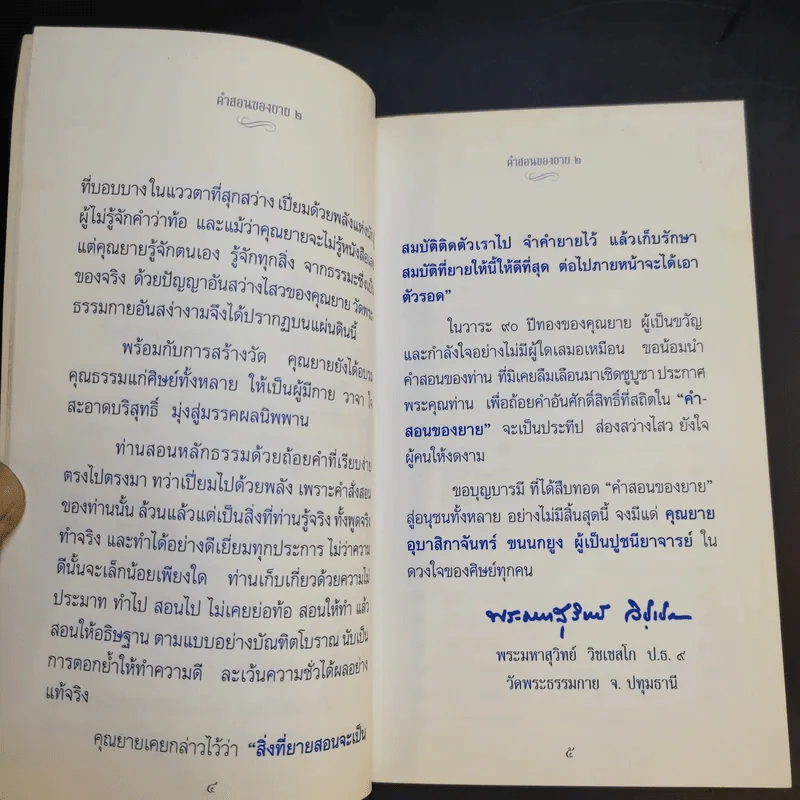 คำสอนของยาย ๒
ที่บอบบางในแววตาที่สุกสว่าง เปี่ยมด้วยพลังแห่ง
ผู้ไม่รู้จักคำว่าท้อ และแม้ว่าคุณยายจะไม่รู้หนังสือ
แต่คุณยายรู้จักตนเอง รู้จักทุกสิ่ง จากธรรมะซึ่งเป็น
ของจริง ด้วยปัญญาอันสว่างไสวของคุณยาย วัดพระ
ธรรมกายอันสง่างามจึงได้ปรากฏบนแผ่นดินนี้
พร้อมกับการสร้างวัด คุณยายยังได้อบรม
คุณธรรมแก่ศิษย์ทั้งหลาย ให้เป็นผู้มีกาย วาจา ใจ
สะอาดบริสุทธิ์ มุ่งสู่มรรคผลนิพพาน
ท่านสอนหลักธรรมด้วยถ้อยคำที่เรียบง่าย
ตรงไปตรงมา ทว่าเปี่ยมไปด้วยพลัง เพราะคำสั่งสอน
ของท่านนั้น ล้วนแล้วแต่เป็นสิ่งที่ท่านรู้จริง ทั้งพูดจริง
ทำจริง และทำได้อย่างดีเยี่ยมทุกประการ ไม่ว่าความ
ดีนั้นจะเล็กน้อยเพียงใด ท่านเก็บเกี่ยวด้วยความไม่
ประมาท ทำไป สอนไป ไม่เคยย่อท้อ สอนให้ทำ แล้ว
สอนให้อธิษฐาน ตามแบบอย่างบัณฑิตโบราณ นับเป็น
การตอกย้ำให้ทำความดี ละเว้นความชั่วได้ผลอย่าง
แท้จริง
คุณยายเคยกล่าวไว้ว่า “สิ่งที่ยายสอนจะเป็น
๔
คำสอนของยาย ๒
สมบัติติดตัวเราไป จำคำยายไว้ แล้วเก็บรักษา
สมบัติที่ยายให้นี้ให้ดีที่สุด ต่อไปภายหน้าจะได้เอา
ตัวรอด”
ในวาระ ๙๐ ปีทองของคุณยาย ผู้เป็นขวัญ
และกำลังใจอย่างไม่มีผู้ใดเสมอเหมือน ขอน้อมนำ
คำสอนของท่าน ที่มิเคยลืมเลือนมาเชิดชูบูชา ประกาศ
พระคุณท่าน เพื่อถ้อยคำอันศักดิ์สิทธิ์ที่สถิตใน “คำ-
สอนของยาย” จะเป็นประทีป ส่องสว่างไสว ยังใจ
ผู้คนให้งดงาม
ขอบุญบารมี ที่ได้สืบทอด “คำสอนของยาย”
สู่อนุชนทั้งหลาย อย่างไม่มีสิ้นสุดนี้ จงมีแด่ คุณยาย
อุบาสิกาจันทร์ ขนนกยูง ผู้เป็นปูชนียาจารย์ ใน
ดวงใจของศิษย์ทุกคน
พระมหาสุวิทย์
พระมหาสุวิทย์ วิชเชสโก ป.ธ. ๙
วัดพระธรรมกาย จ. ปทุมธานี
๕